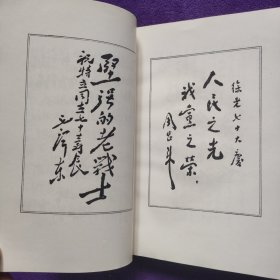 坚强的老战士
祝特立同志七十寿辰
毛泽东
徐老七十大庆
人民之光
我党之荣
周恩来